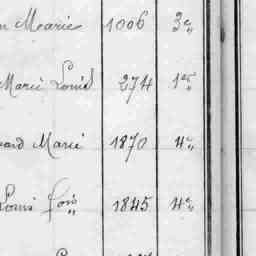 Marie 1006 3e
Marie Louis 274 1er
ard Marie 1870 4e
Louis fois 1845 4e